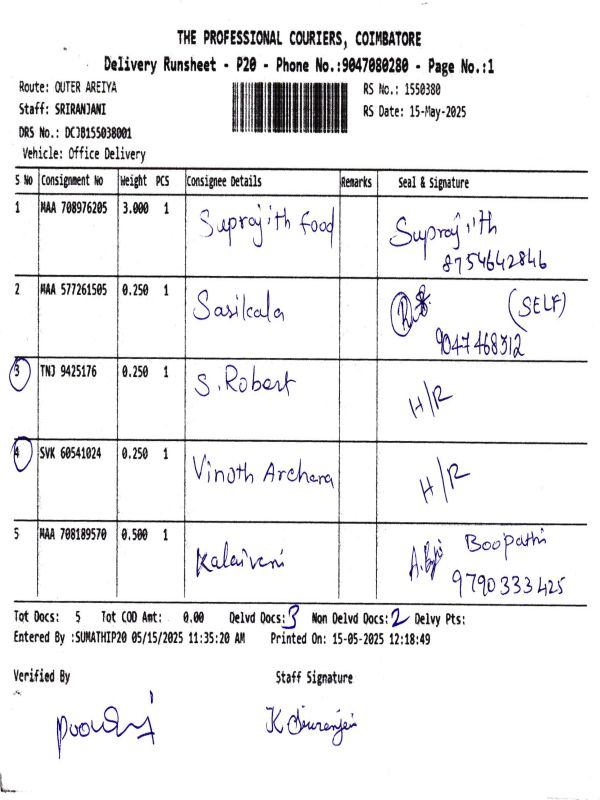 THE PROFESSIONAL COURIERS, COIMBATORE
Delivery Runsheet - P20 - Phone No.:9047080280 - Page No.:1
Route: OUTER AREIYA RS No.: 1550380
Staff: SRIRANJANI RS Date: 15-May-2025
DRS No.: DCJB155038001
Vehicle: Office Delivery
S No Consignment No Weight PCS Consignee Details Remarks Seal & Signature
1 MAA 708976205 3.000 1 Suprajith food Suprajith
8754642846
2 MAA 577261505 0.250 1 Sasikala (SELF)
9047468312
3 TNJ 9425176 0.250 1 S. Robert H/R
4 SVK 60541024 0.250 1 Vinoth Archana H/R
5 MAA 708189570 0.500 1 Kalaivani Boopathi
9790333425
Tot Docs: 5 Tot COD Amt: 0.00 Delvd Docs: 3 Non Delvd Docs: 2 Delvy Pts:
Entered By :SUMATHIP20 05/15/2025 11:35:20 AM Printed On: 15-05-2025 12:18:49
Verified By Staff Signature